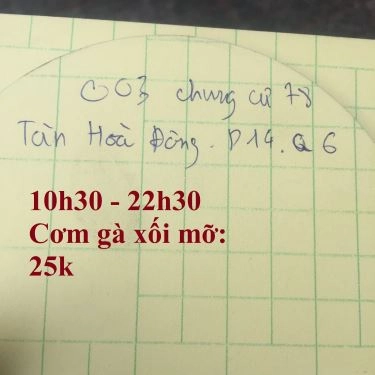 003 chung cư 78
Tân Hoà Đông. P14. Q6
10h30 - 22h30
Cơm gà xối mỡ:
25k